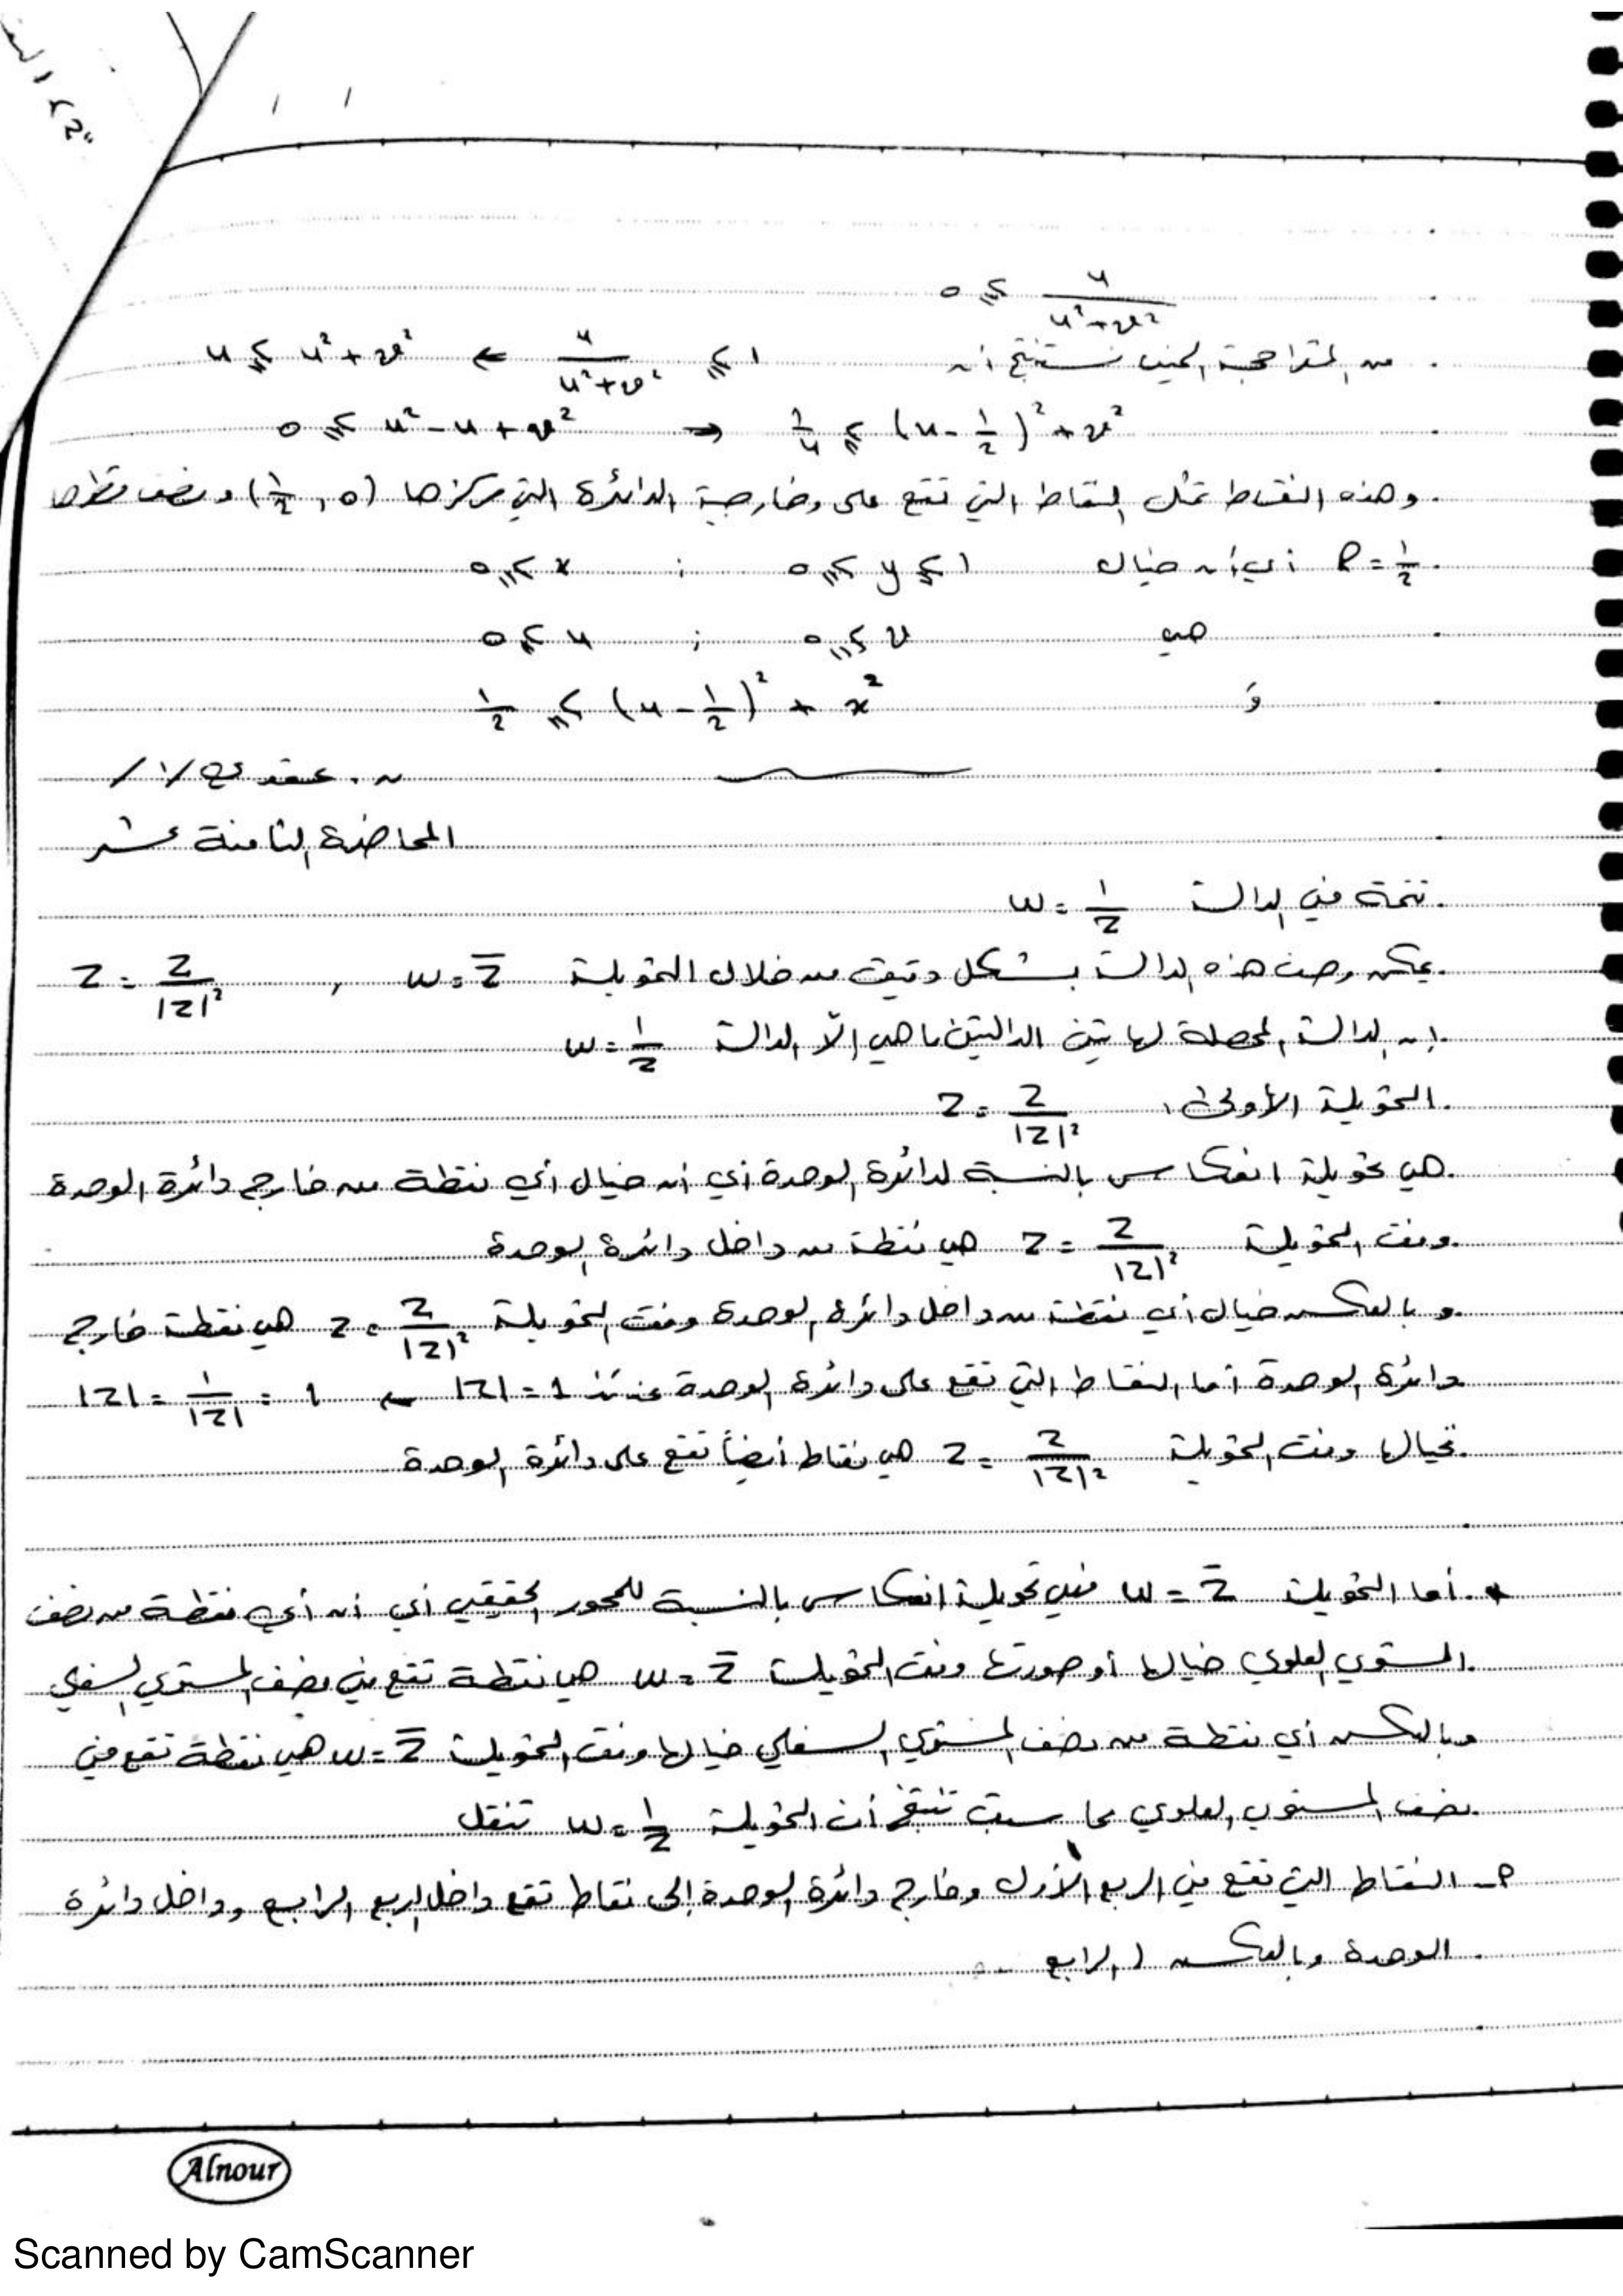 u / (u² + v²) ≥ 0
من المتراجحة اليمين نستنتج أن 1 ≥ u / (u² + v²) ← u ≤ u² + v²
0 ≤ u² - u + v² → 1/4 ≤ (u - 1/2)² + v²
وهذه النقاط تمثل النقاط التي تقع على وخارجية الدائرة التي مركزها (1/2, 0) ونصف قطرها
R = 1/2 أي أن خيال 1 ≥ y ≥ 0 ; x ≥ 0
هي v ≤ 0 ; u ≥ 0
وَ 1/2 ≤ (u - 1/2)² + x²
ن. عقدي /1/
المحاضرة الثامنة عشر
تتمة في الدالة w = 1/z
يمكن وصف هذه الدالة بشكل دقيق من خلال التحويلة w = z̄ , Z = z/|z|²
إن الدالة المحصلة لهاتين الدالتين ما هي إلّا الدالة w = 1/z
التحويلة الأولى: Z = z/|z|²
هي تحويلة انعكاس بالنسبة لدائرة الوحدة أي أن خيال أي نقطة من خارج دائرة الوحدة
وفق التحويلة Z = z/|z|² هي نقطة من داخل دائرة الوحدة
وبالعكس خيال أي نقطة من داخل دائرة الوحدة وفق التحويلة Z = z/|z|² هي نقطة خارج
دائرة الوحدة أما النقاط التي تقع على دائرة الوحدة عندئذ |z| = 1 ← |z| = 1/|z| = 1
خيالها وفق التحويلة Z = z/|z|² هي نقاط أيضاً تقع على دائرة الوحدة
* أما التحويلة w = z̄ فهي تحويلة انعكاس بالنسبة للمحور الحقيقي أي أن أي نقطة من نصف
المستوي العلوي خيالها أو صورتها وفق التحويلة w = z̄ هي نقطة تقع في نصف المستوي السفلي
وبالعكس أي نقطة من نصف المستوي السفلي خيالها وفق التحويلة w = z̄ هي نقطة تقع في
نصف المستوي العلوي مما سبق نستنتج أن التحويلة w = 1/z تنقل
P- النقاط التي تقع في الربع الأول وخارج دائرة الوحدة إلى نقاط تقع داخل الربع الرابع وداخل دائرة
الوحدة وبالعكس (الرابع ...
Alnour
Scanned by CamScanner